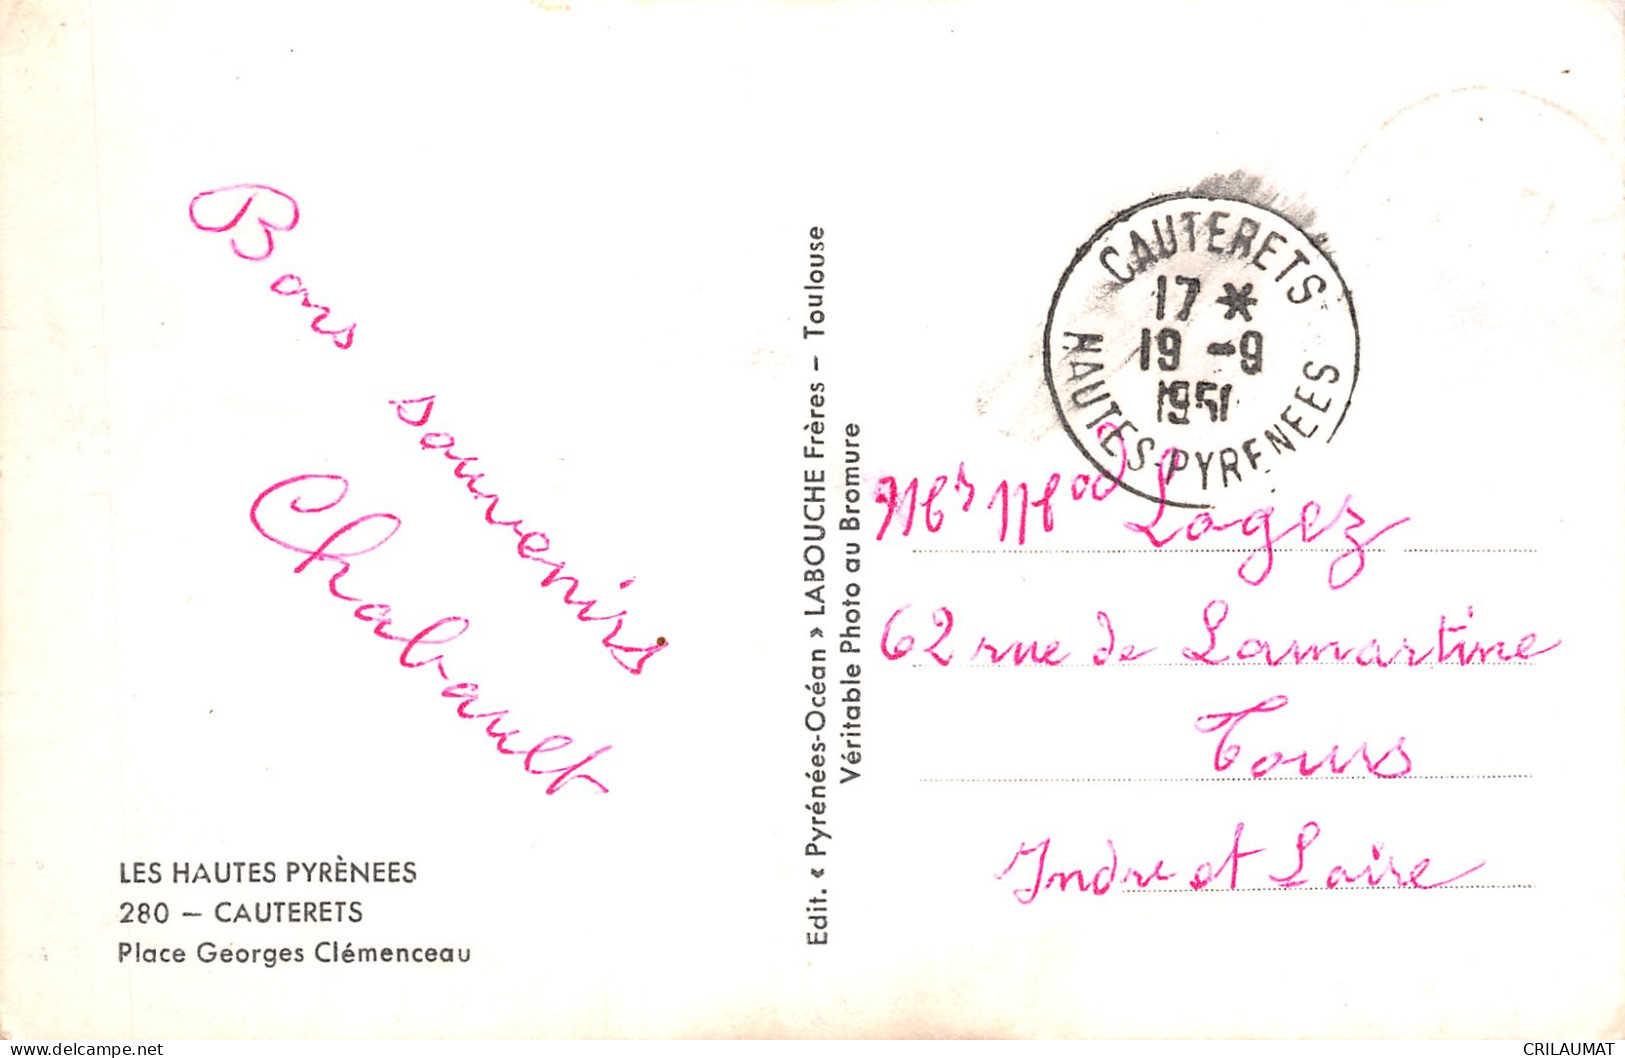 Bons souvenirs
Chabault
LES HAUTES PYRÈNEES
280 – CAUTERETS
Place Georges Clémenceau
Edit. « Pyrénées-Océan » LABOUCHE Frères – Toulouse
Véritable Photo au Bromure
CAUTERETS
17 *
19 -9
1951
HAUTES-PYRENEES
Logez
62 rue de Lamartine
Tours
Indre et Loire
www.delcampe.net
CRILAUMAT